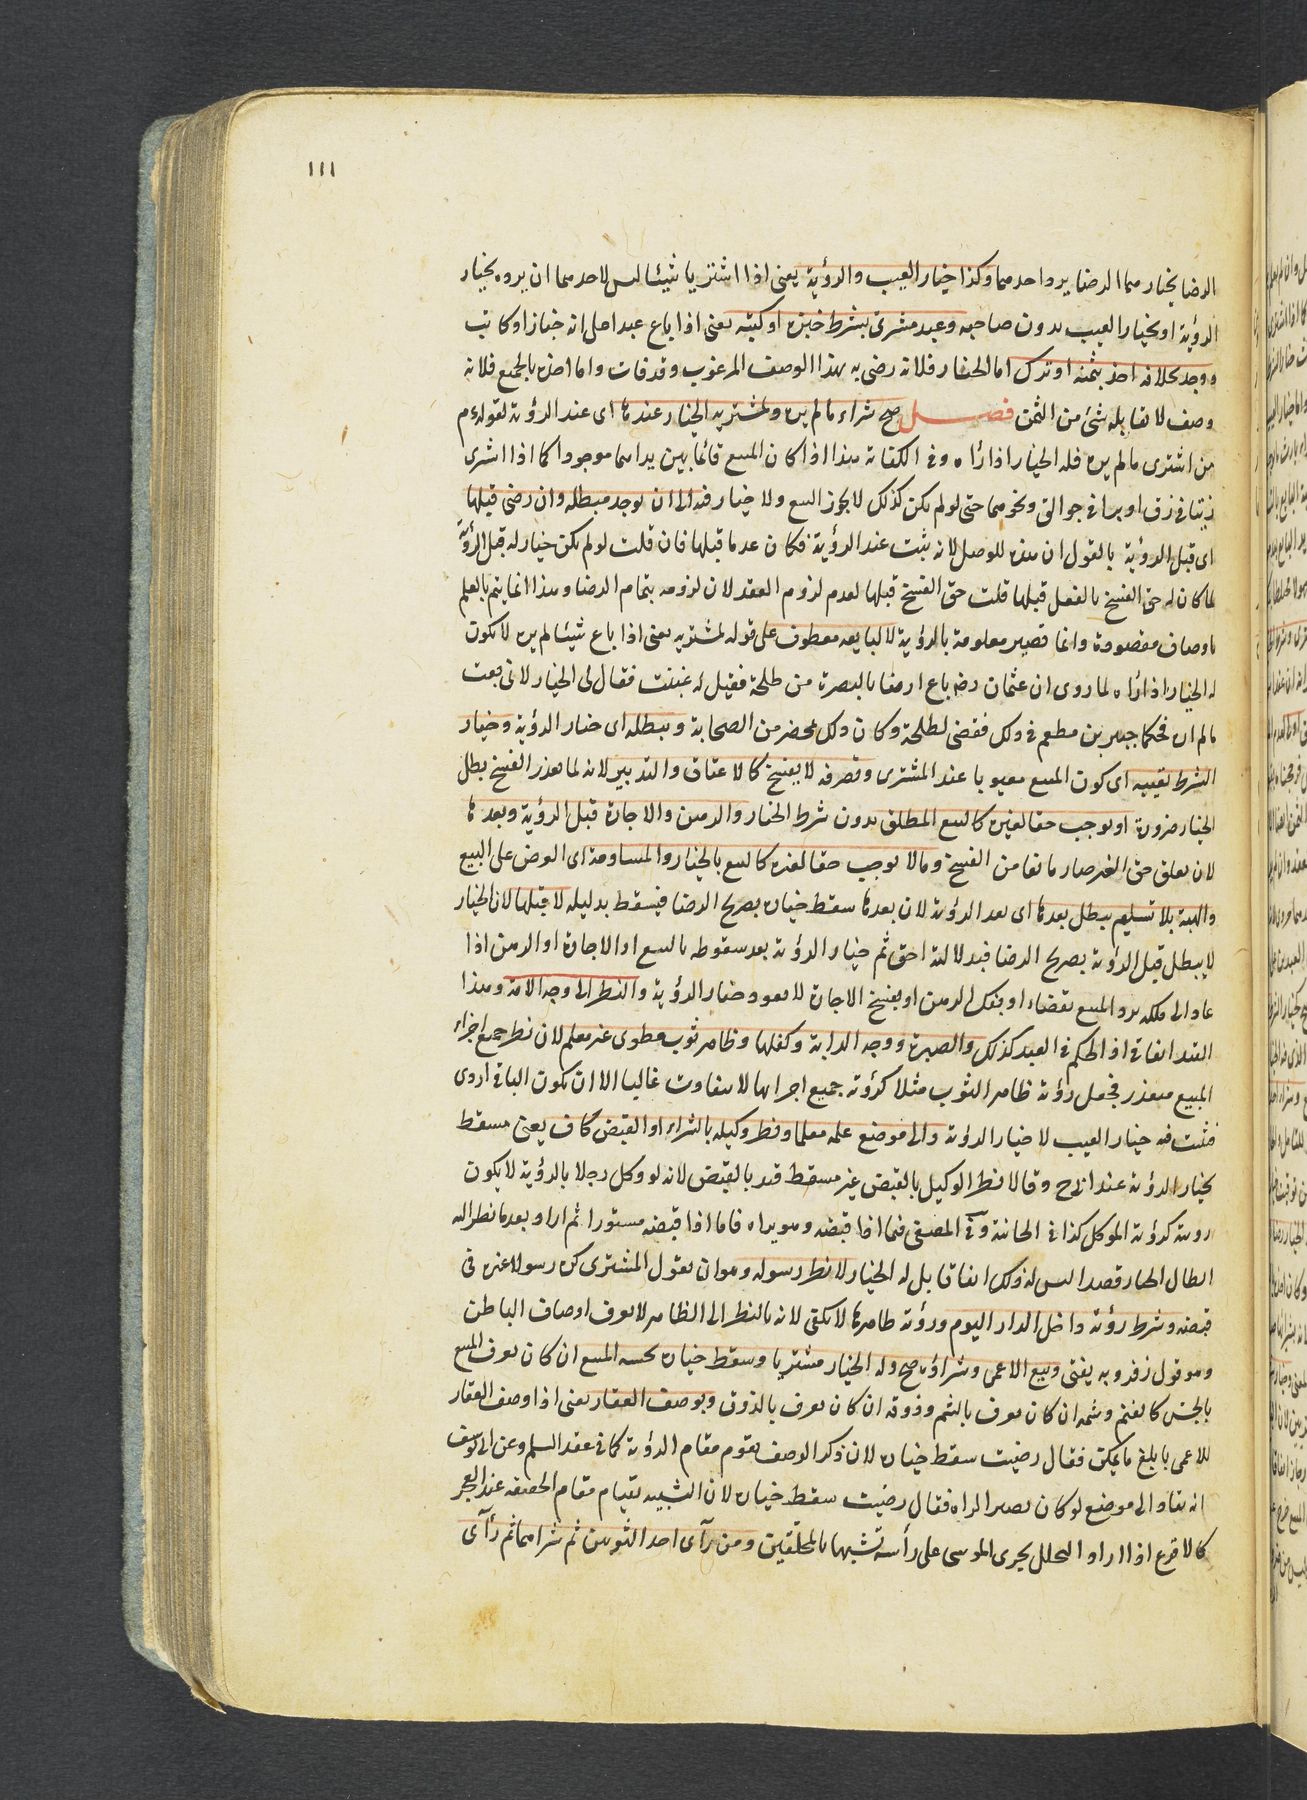 ١١١
الرضا بخيارهما الرضا يرد احدهما وكذا خيار العيب والرؤية يعنى اذا اشتريا شيئا ليس لاحدهما ان يرده بخيار
الرؤية او بخيار العيب بدون صاحبه وعبد مشرىّ بشرط خبزه او كتبه يعنى اذا باع عبدا على انه خباز او كاتب
ووجد بخلافه اخذ بثمنه او ترك اما الخيار فلانه رضى به بهذا الوصف المرغوب وقد فات واما اخذه بالجميع فلانه
وصف لا يقابله شئ من الثمن فصل صح شراء ما لم يره ولمشتريه الخيار عندها اى عند الرؤية لقوله عم
من اشترى ما لم يره فله الخيار اذا رآه وفى الكفاية هذا اذا كان المبيع قائما بين يديهما موجودا كما اذا اشترى
زيتا فى زق او برا فى جوالق ونحوهما حتى لو لم يكن كذلك لا يجوز البيع ولا خيار فيه الى ان يوجد مبطله وان رضى قبلها
اى قبل الرؤية بالقول ان هذه للوصل لانه يثبت عند الرؤية فكان عدما قبلها فان قلت لو لم يكن خيار له قبل الرؤية
لما كان له حق الفسخ بالفعل قبلها قلت حق الفسخ قبلها لعدم لزوم العقد لان لزومه بتمام الرضا وهذا انما يتم بالعلم
باوصاف مقصودة وانما تصير معلومة بالرؤية لا لبايعه معطوف على قوله لمشتريه يعنى اذا باع شيئا لم يره لا يكون
له الخيار اذا رآه لما روى ان عثمان رضه باع ارضا بالبصرة من طلحة فقيل له غبنت فقال لى الخيار لانى بعت
ما لم اره فحكما جبير بن مطعم فى ذلك فقضى لطلحة وكان ذلك بمحضر من الصحابة ويبطله اى خيار الرؤية وخيار
الشرط تعيبه اى كون المبيع معيوبا عند المشترى وتصرفه لا يفسخ كالاعتاق والتدبير لانه لما تعذر الفسخ بطل
الخيار ضرورة او يوجب حقا لغيره كالبيع المطلق بدون شرط الخيار والرهن والاجارة قبل الرؤية وبعدها
لان تعلق حق الغير صار مانعا من الفسخ وما لا يوجب حقا لغيره كالبيع بالخيار والمساومة اى العرض على البيع
والهبة بلا تسليم يبطل بعدها اى بعد الرؤية لان بعدها سقط خياره بصريح الرضا فيسقط بدليله لا قبلها لان الخيار
لا يبطل قبل الرؤية بصريح الرضا فبدلالته احق ثم خيار الرؤية بعد سقوطه بالبيع او الاجارة او الرهن اذا
عاد الى ملكه برد المبيع بقضاء او بفك الرهن او بفسخ الاجارة لا يعود خيار الرؤية والنظر الى وجه الامة وهذا
القيد اتفاقى اذ الحكم فى العبد كذلك والصبرة ووجه الدابة وكفلها وظاهر ثوب مطوى غير معلم لان نظر جميع اجزاء
المبيع متعذر فجعل رؤية ظاهر الثوب مثلا كرؤية جميع اجزائها لا يتفاوت غالبا الا ان يكون الباقى اردى
فثبت فيه خيار العيب لا خيار الرؤية والى موضع علمه معلما ونظر وكيله بالشراء او القبض كاف يعنى مسقط
بخيار الرؤية عند ابى ح وقالا نظر الوكيل بالقبض غير مسقط قيد بالقبض لانه لو وكل رجلا بالرؤية لا يكون
رويته كرؤية الموكل كذا فى الخانية وفى المصفى فيما اذا قبضه وهو يراه فاما اذا قبضه مستورا ثم اراد بعد ما نظر اليه
ابطال الخيار قصدا ليس له ذلك اتفاقا بل له الخيار لا نظر رسوله وهو ان يقول المشترى كن رسولا عنى فى
قبضه وشرط رؤية داخل الدار اليوم ورؤية ظاهرها لا يكفى لانه بالنظر الى الظاهر لا يعرف اوصاف الباطن
وهو قول زفر وبه يفتى وبيع الاعمى وشراؤه صح وله الخيار مشتريا وسقط خياره بجسه المبيع ان كان يعرف المبيع
بالجس كالغنم وشمه ان كان يعرف بالشم وذوقه ان كان يعرف بالذوق وبوصف العقار يعنى اذا وصف العقار
للاعمى بابلغ ما يمكن فقال رضيت سقط خياره لان ذكر الوصف يقوم مقام الرؤية كما فى عقد السلم وعن ابى يوسف
انه يقاد الى موضع لو كان بصيرا لراه فقال رضيت سقط خياره لان التشبيه يقام مقام الحقيقة عند العجز
كالاقرع اذا اراد التحلل يجرى الموسى على رأسه تشبها بالمحلّقين ومن رآى احد الثوبين ثم شراهما ثم رآى